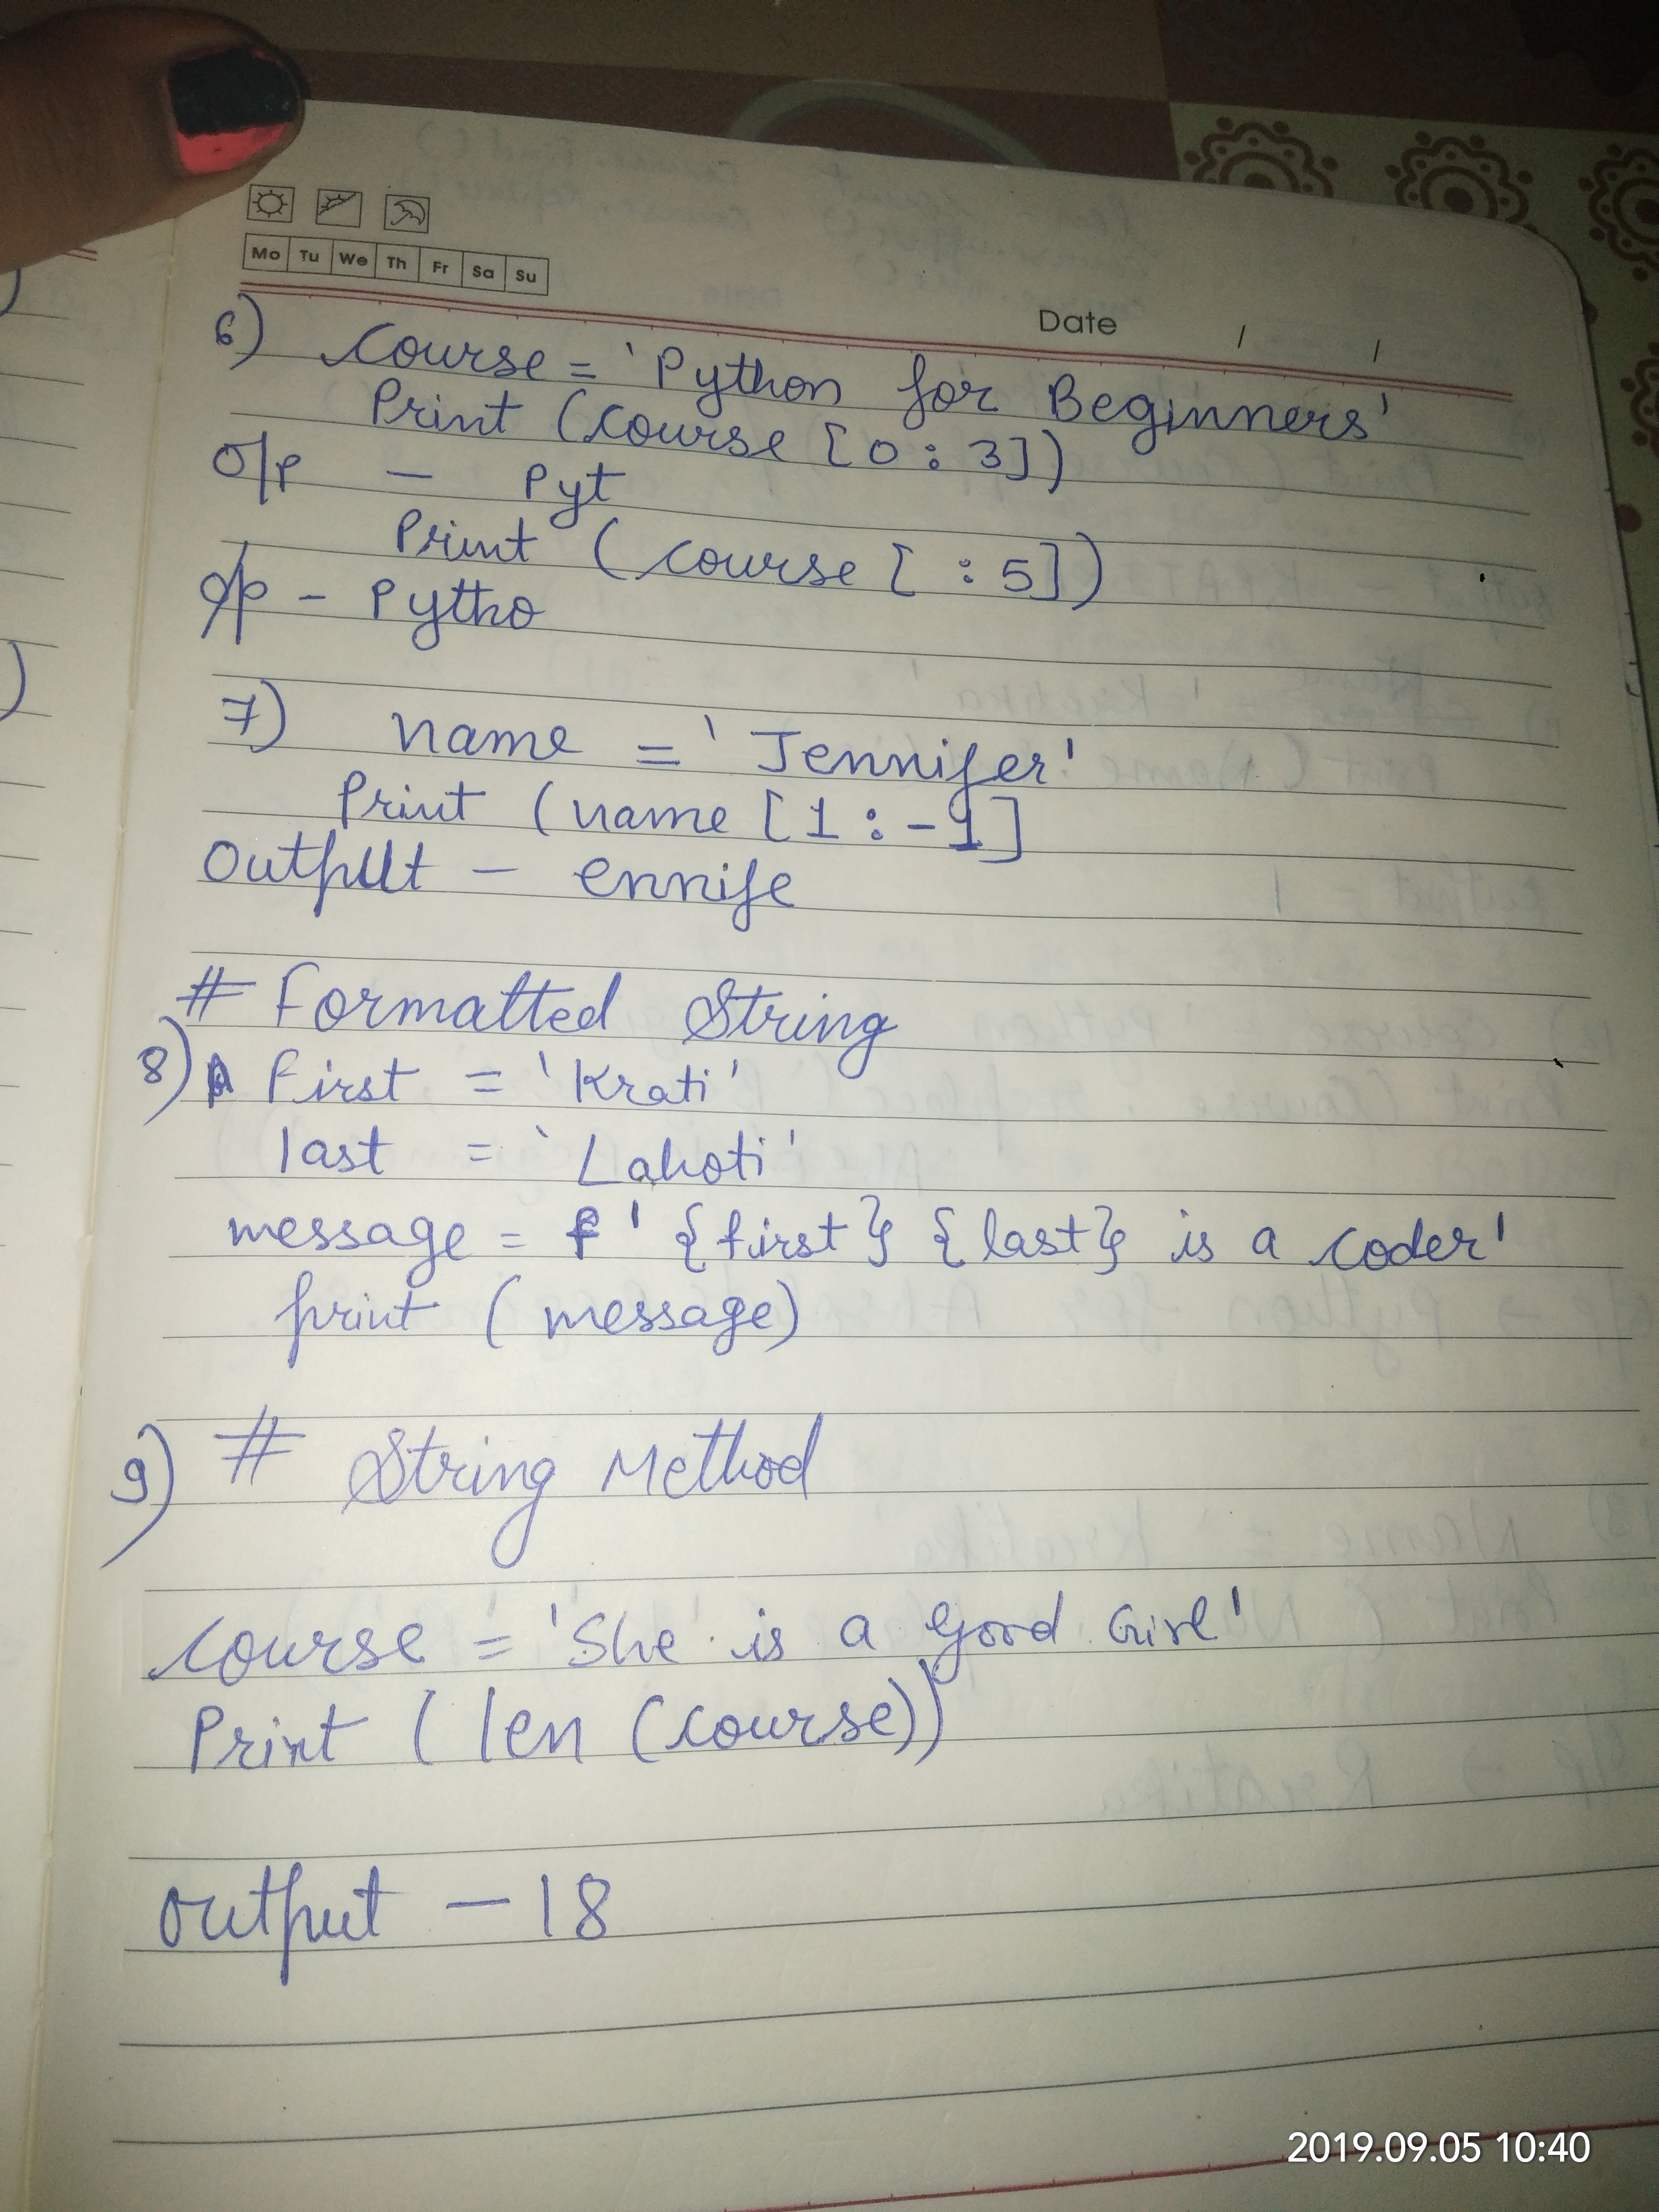 Mo Tu We Th Fr Sa Su
Date / /
6) course = 'Python for Beginners'
Print (course [0 : 3])
o/p — Pyt
Print (course [ : 5])
o/p - Pytho
7) name = 'Jennifer'
Print (name [1 : -1]
Output — ennife
# Formatted String
8) First = 'Krati'
last = 'Lahoti'
message = f' {first} {last} is a coder'
print (message)
9) # String Method
course = 'She is a good Girl'
Print (len (course))
output — 18
2019.09.05 10:40